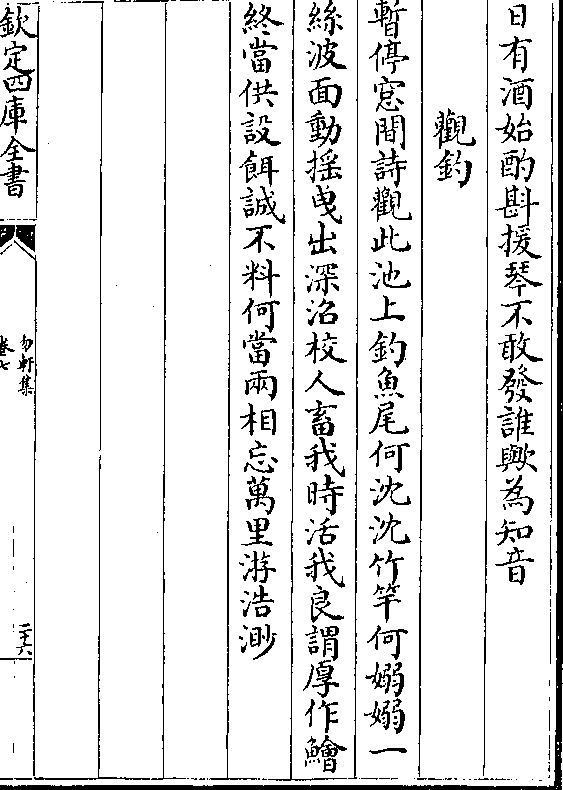 日有酒始酌斟援琴不敢發誰歟為知音
觀釣
暫停窓間詩觀此池上釣魚尾何沈沈竹竿何嫋嫋一
絲波面動揺曵出深沼校人畜我時活我良謂厚作鱠
終當供設餌誠不料何當兩相忘萬里游浩渺
欽定四庫全書
勿軒集
卷七
二十六